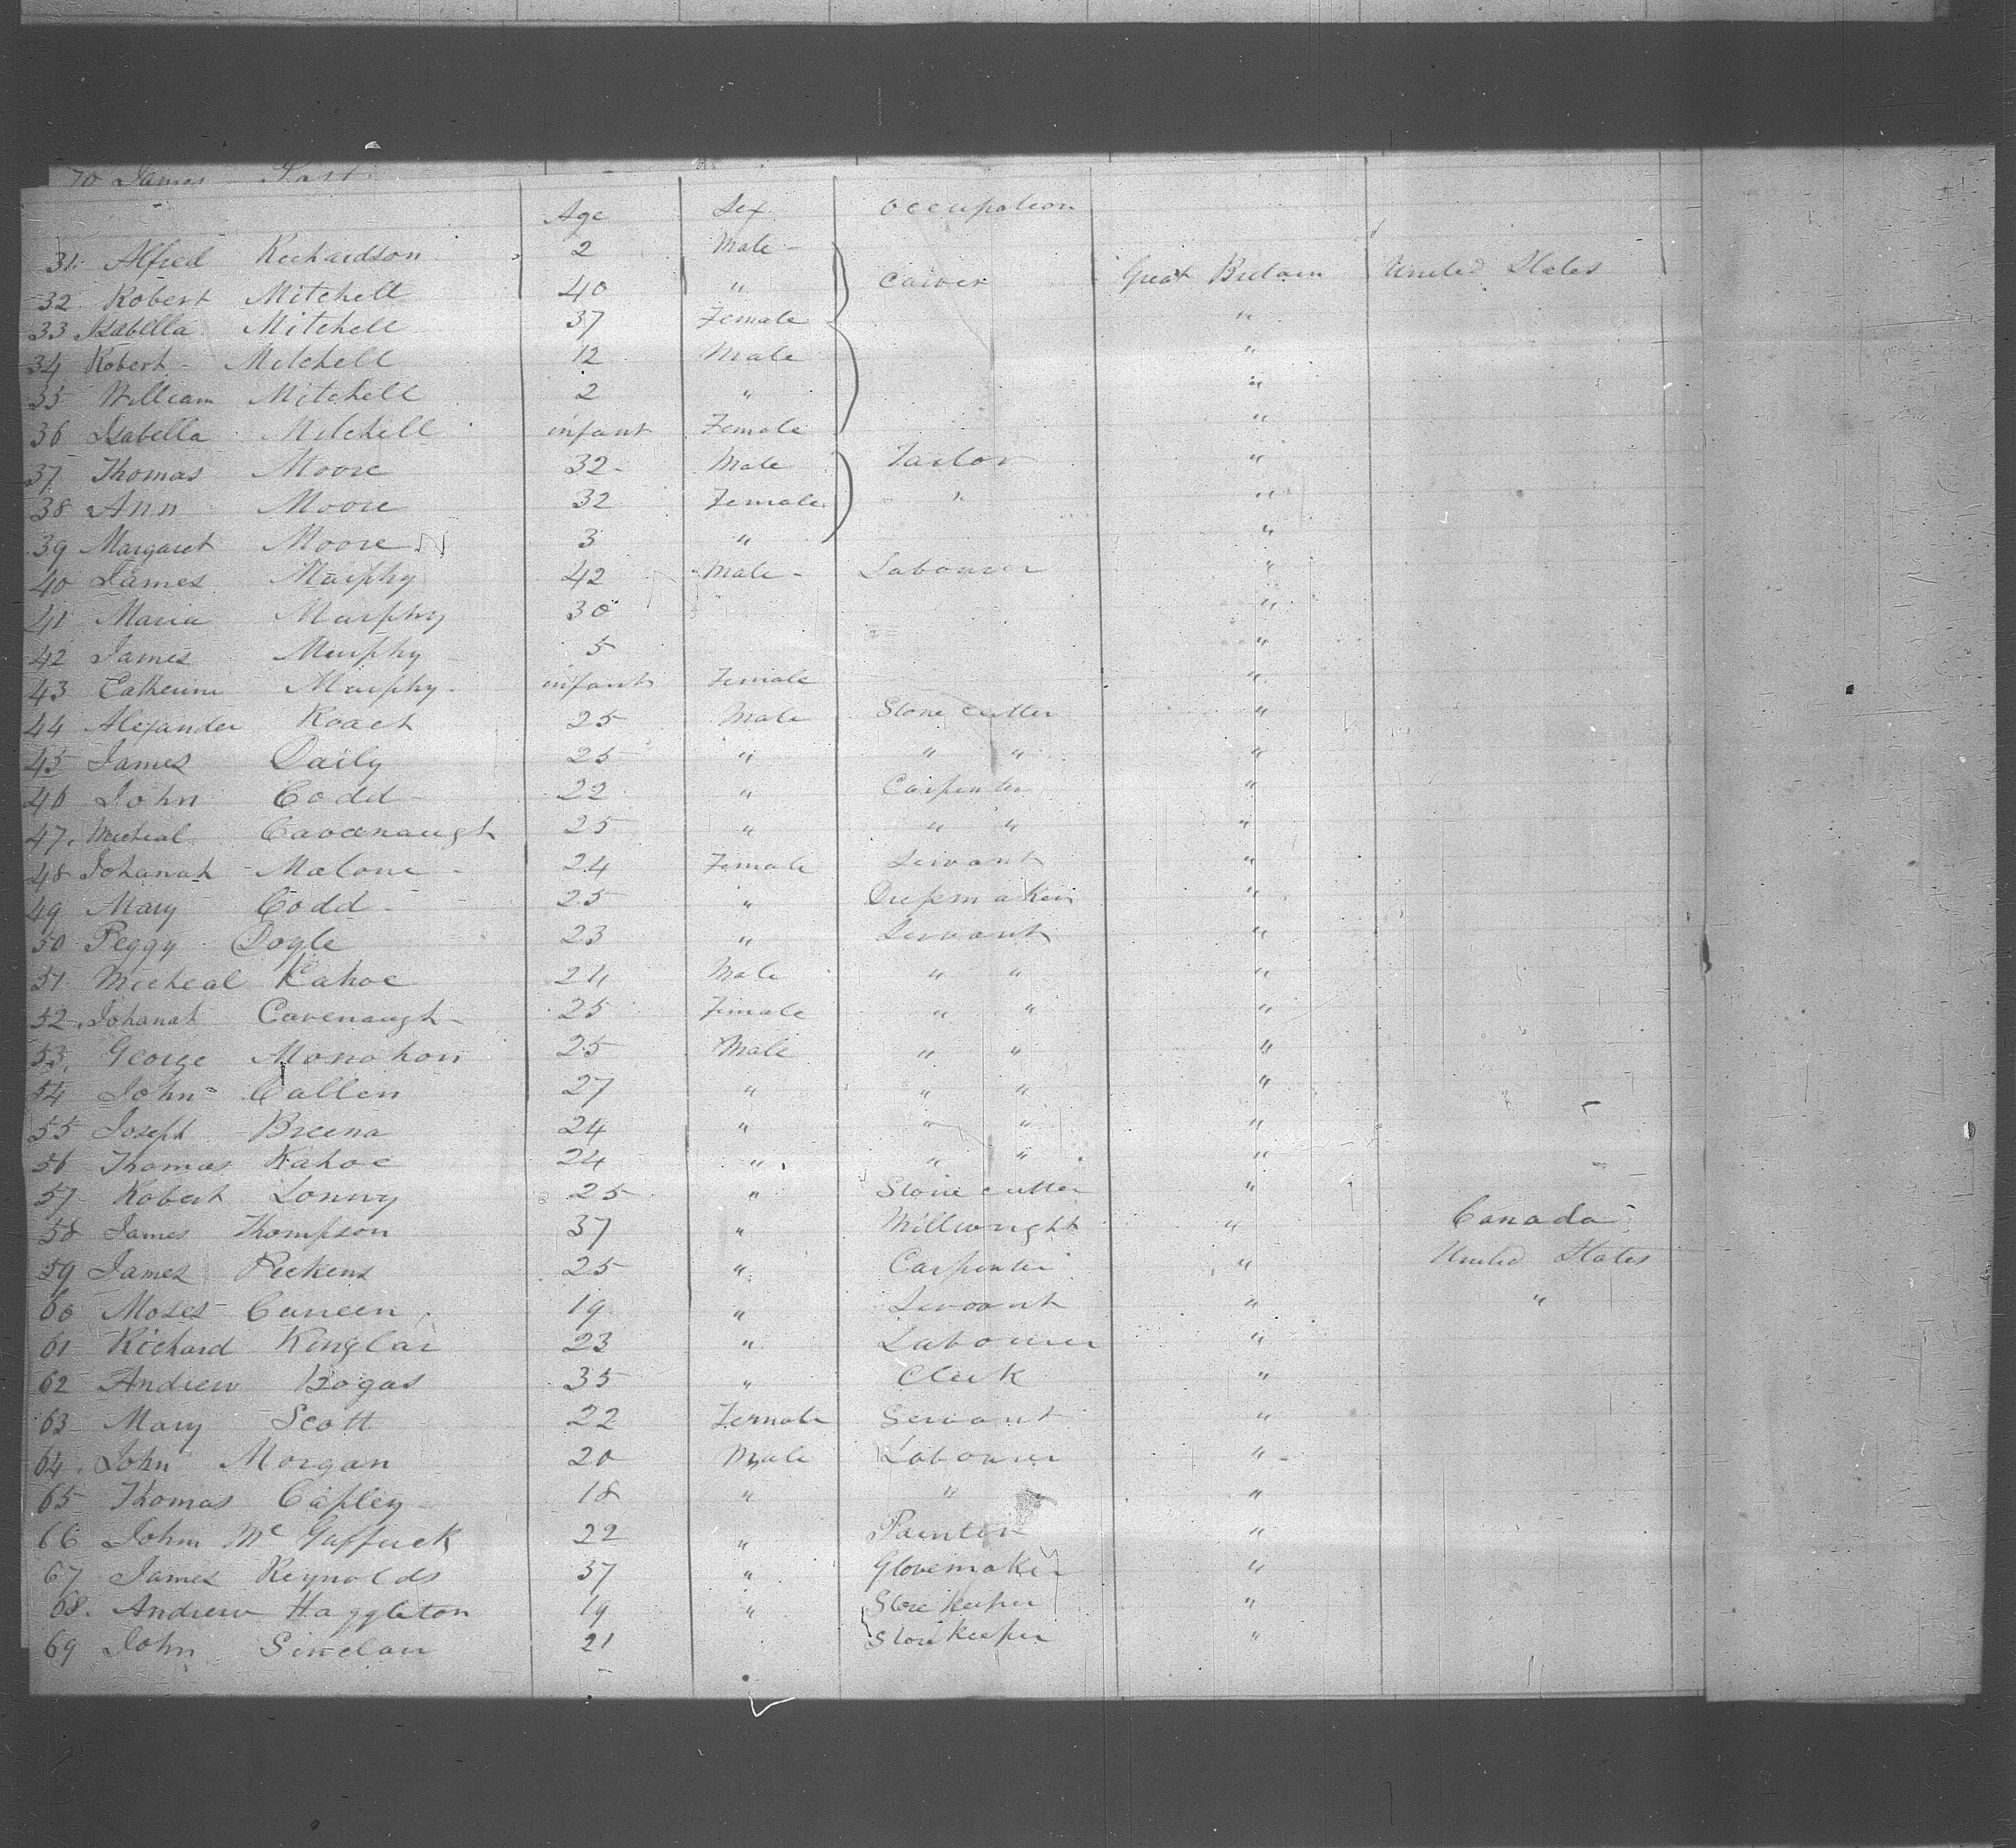 70 James
Age Sex Occupation
31. Alfred Richardson 2 Male -
32 Robert Mitchell 40 " Carver Great Britain United States
33 Isabella Mitchell 37 Female "
34 Robert - Mitchell 12 Male "
35 William Mitchell 2 " "
36 Isabella Mitchell infant Female "
37 Thomas Moore 32 - Male Tailor "
38 Ann Moore 32 Female " "
39 Margaret Moore 3 " "
40 James Murphy 42 Male - Labourer "
41 Maria Murphy 30 "
42 James Murphy 5 "
43 Catherine Murphy infant Female "
44 Alexander Roach 25 Male Stone cutter "
45 James Daily 25 " " " "
46 John Codd - 22 " Carpenter "
47. Micheal Cavanaugh 25 " " " "
48 Johanah Malone - 24 Female Servant "
49 Mary Codd - 25 " Dressmaker "
50 Peggy Doyle 23 " Servant "
51 Micheal Kahoe 24 Male " " "
52 Johanah Cavenaugh - 25 Female " " "
53. George Monahon 25 Male " " "
54 John Callen 27 " " " "
55 Joseph Breena 24 " " " "
56 Thomas Kahoe 24 " " " "
57 Robert 25 " Stone cutter "
58 James Thompson 37 " Millwright " Canada
59 James Pickens 25 " Carpenter " United States
60 Moses Cuneen 19 " Servant " "
61 Richard Kinglar 23 " Labourer "
62 Andrew Bogas 35 " Clerk "
63 Mary Scott 22 Female Servant "
64. John Morgan 20 Male Labourer "
65 Thomas Capley 18 " " "
66 John Mc 22 " Painter "
67 James Reynolds 37 " Glovemaker "
68. Andrew Haggleton 19 " Store keeper "
69 John Sinclair 21 Store keeper "